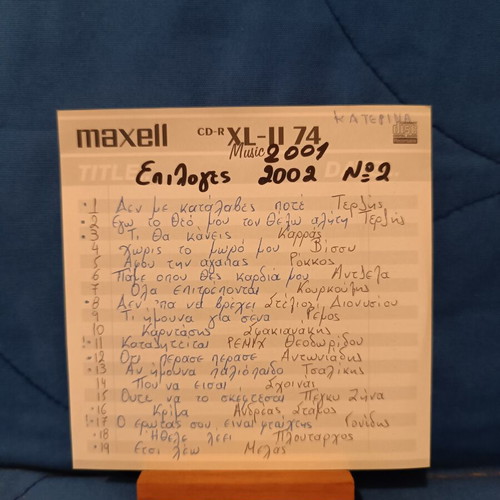 ΚΑΤΕΡΙΝΑ
maxell CD-R XL-II 74
Music 2001
TITLE DA
Επιλογες 2002 Νο2
• 1 Δεν με κατάλαβες ποτέ Τερζής
• 2 Εγω το θεό μου τον θέλω αλήτη Τερζής
• 3 Τι θα κάνεις Καρράς
4 Χωρίς το μωρό μου Βίσσυ
5 Αφου την αγαπας Ρόκκος
6 Πάμε οπου θες καρδιά μου Αντζελα
7 Όλα επιτρέπονται Κουρκούλης
• 8 Δεν 'πα να βρέχει Στέλιος Διονυσίου
9 Τι ήμουνα για σενα Ρέμος
10 Καρντάσης Σφακιανάκης
! 11 Καταζητείται ΡΕΜΙΧ Θεοδωρίδου
• 12 Ότι περασε πέρασε Αντωνιάδης
! • 13 Αν ήμουνα παλιόπαιδο Τσαλίκης
14 Που να εισαι Σχοινάς
15 Ουτε να το σκέφτεσαι Πέγκυ Ζήνα
• 16 Κρίμα Ανδρέας Στάμος
! • 17 Ο ερωτας σου ειναι φταίχτης Γονίδης
• 18 Ήθελε λέει Πλούταρχος
• 19 Ετσι λέω Μελάς